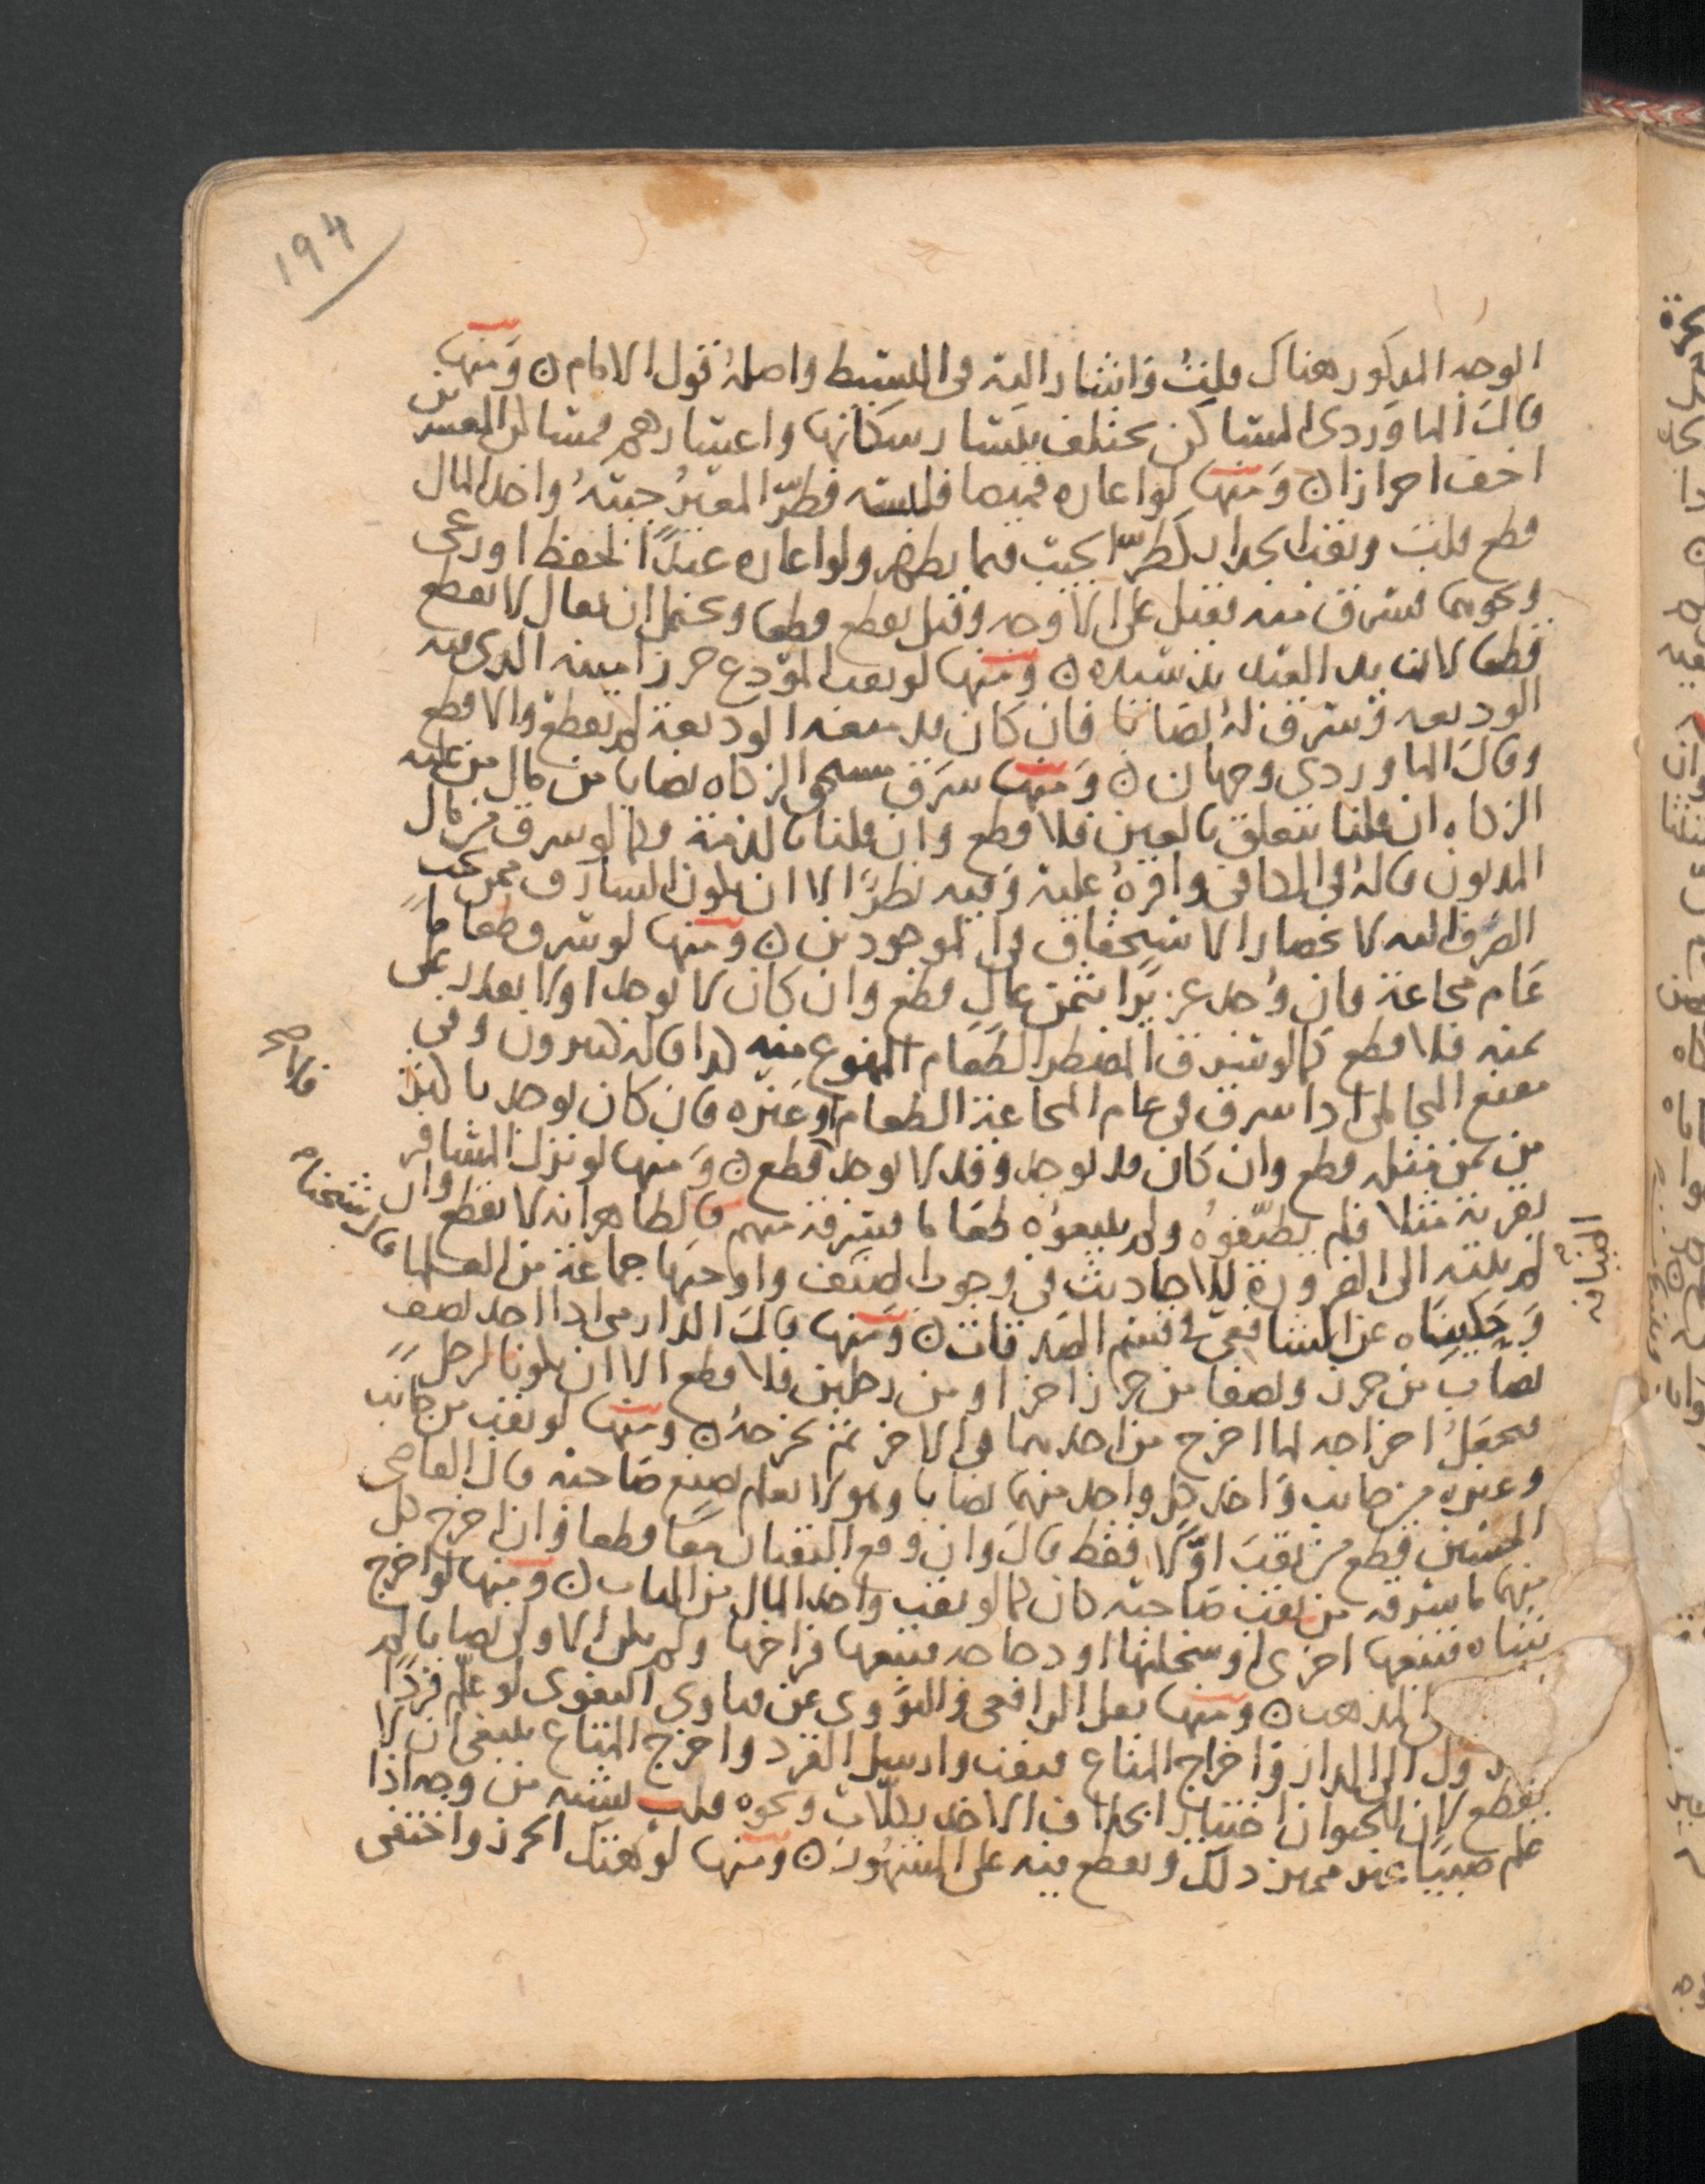 194
الوجه المذكور هناك قلت واشار اليه في البسيط واصله قول الامام ن ومنها
قال الماوردي المساكن تختلف بيسار سكانها واعتبارهم فمساكن المعسرين
اخف احرازا ن ومنها لو اعاره قميصا فلبسه فطر المعير جيبه واخذ المال
قطع قلت ونقب الجدار كطر الجيب فيما يظهر ولو اعاره عبدا لحفظ او رعي
ونحوهما فسرق منه فقيل على الاوجه وقيل يقطع قطعا ويحتمل ان يقال لا يقطع
قطعا لان يد العبد يد سيده ن ومنها لو نقب المودع حرزا فيه الذي منه
الوديعة فسرق له نصابا فان كان قد منعه الوديعة لم يقطع والا قطع
وقال الماوردي وجهان ن ومنها سرق مستحق الزكاه نصابا من مال من عليه
الزكاه ان قلنا تتعلق بالعين فلا قطع وان قلنا بالذمة فكما لو سرق من مال
المديون قاله في الكافي واقره عليه وفيه نظر الا ان يكون السارق ممن يجب
الصرف اليه لانحصار الاستحقاق في الموجودين ن ومنها لو سرق طعاما
عام مجاعة فان وجد عزيزا بثمن غال قطع وان كان لا يوجد او لا يقدر على
ثمنه فلا قطع كما لو سرق المضطر الطعام الممنوع منه كذا قاله كثيرون وفي
مقنع المحاملي اذا سرق في عام المجاعة الطعام او غيره فان كان يوجد باكثر
من ثمن مثله قطع وان كان قد يوجد وقد لا يوجد قطع ن ومنها لو نزل المسافر
فلا صح
بقرية مثلا فلم يضيفوه ولم يبيعوه طعاما فسرقه منهم فالظاهر انه لا يقطع وان
لم ينته الى الضرورة للاحاديث في وجوب الضيف واوجبها جماعة من العلما قال شيخنا
الضيافة
وحكيناه عن الشافعي في قسم الصدقات ن ومنها قال الدارمي اذا اخذ نصف
نصاب من حرز ونصفا من حرز اخر او من رجلين فلا قطع الا ان يكونا لرجل
فيجعل اخراجه لما اخرج من احدهما في الاخر ثم يخرجه ن ومنها لو نقب من جانب
وغيره من جانب واخذ كل واحد منهما نصابا وهو لا يعلم بصنع صاحبه قال القاضي
الحسين قطع من نقب اولا فقط قال وان وقع النقبان معا قطعا وان اخرج كل
منهما ما سرقه من نقب صاحبه كان كما لو نقب واخذ المال من الباب ن ومنها لو اخرج
شاه فتبعها اخرى او سخلتها او دجاجه فتبعها فراخها ولم يكن الاولى نصابا لم
المذهب ن ومنها نقل الرافعي والنووي عن فتاوى البغوي لو علم قردا
دخول الى الدار واخراج المتاع فنقب وارسل القرد واخرج المتاع فينبغي ان لا
يقطع لان للحيوان اختيارا بخلاف الاخذ بكلاب ونحوه قلت يشبه من وجه اذا
علم صبيا غير مميز ذلك ويقطع فيه على المشهور ن ومنها لو هتك الحرز واختفى